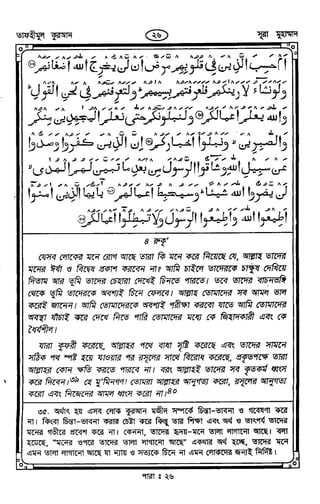 তাফহীমুল কুরআন
২৬
সূরা মুহাম্মাদ
أَمْ حَسِبَ الَّذِينَ فِي قُلُوبِهِمْ مَّرَضٌ أَنْ لَّنْ يُّخْرِجَ اللهُ أَضْغَانَهُمْ ﴿٢٩﴾
وَلَوْ نَشَاءُ لَأَرَيْنٰكَهُمْ فَلَعَرَفْتَهُمْ بِسِيْمٰهُمْ وَلَتَعْرِفَنَّهُمْ فِي لَحْنِ الْقَوْلِ
وَاللهُ يَعْلَمُ أَعْمَالَكُمْ ﴿٣٠﴾ وَلَنَبْلُوَنَّكُمْ حَتّٰى نَعْلَمَ الْمُجٰهِدِينَ مِنْكُمْ
وَالصّٰبِرِينَ وَنَبْلُوَا أَخْبَارَكُمْ ﴿٣١﴾ إِنَّ الَّذِينَ كَفَرُوا وَصَدُّوا
عَنْ سَبِيلِ اللهِ وَشَاقُّوا الرَّسُولَ مِنْ بَعْدِ مَا تَبَيَّنَ لَهُمُ الْهُدٰى
لَنْ يَّضُرُّوا اللهَ شَيْئًا وَسَيُحْبِطُ أَعْمَالَهُمْ ﴿٣٢﴾ يٰأَيُّهَا الَّذِينَ آمَنُوا
أَطِيعُوا اللهَ وَأَطِيعُوا الرَّسُولَ وَلَا تُبْطِلُوا أَعْمَالَكُمْ ﴿٣٣﴾
৪ রুকূ'
যেসব লোকের মনে রোগ আছে তারা কি মনে করে নিয়েছে যে, আল্লাহ তাদের
মনের ঈর্ষা ও বিদ্বেষ প্রকাশ করবেন না? আমি চাইলে তাদেরকে চাক্ষুষ দেখিয়ে
দিতাম আর তুমি তাদের চেহারা দেখেই চিনতে পারতে। তবে তাদের বাচনভঙ্গি
থেকে তুমি তাদেরকে অবশ্যই চিনে ফেলবে। আল্লাহ তোমাদের সব আমল ভাল
করেই জানেন। আমি তোমাদেরকে অবশ্যই পরীক্ষা করবো যাতে আমি তোমাদের
অবস্থা যাঁচাই করে দেখে নিতে পারি তোমাদের মধ্যে কে জিহাদকারী এবং কে
ধৈর্যশীল।
যারা কুফরী করেছে, আল্লাহর পথে বাধা সৃষ্টি করেছে এবং তাদের সামনে
সঠিক পথ স্পষ্ট হয়ে যাওয়ার পর রসূলের সাথে বিরোধ করেছে, প্রকৃতপক্ষে তারা
আল্লাহর কোন ক্ষতি করতে পারবে না। বরং আল্লাহই তাদের সব কৃতকর্ম ধ্বংস
করে দিবেন। হে মু'মিনগণ! তোমরা আল্লাহর আনুগত্য করো, রসূলের আনুগত্য
করো এবং নিজেদের আমল ধ্বংস করো না।
৩৫. অর্থাৎ হয় এসব লোক কুরআন মজীদ সম্পর্কে চিন্তা-ভাবনা ও গবেষণা করে
না। কিংবা চিন্তা-ভাবনা করার চেষ্টা করে কিন্তু তার শিক্ষা এবং অর্থ ও তাৎপর্য তাদের
মনের গভীরে প্রবেশ করে না। কেননা, তাদের হৃদয়-মনে তালা লাগানো আছে। বলা
হয়েছে, "মনের ওপরে তাদের তালা লাগানো আছে" একথার অর্থ হচ্ছে, তাদের মনে
এমন তালা লাগানো আছে যা ন্যায় ও সত্যকে চিনে না এমন লোকদের জন্যই নির্দিষ্ট।
পারা : ২৬